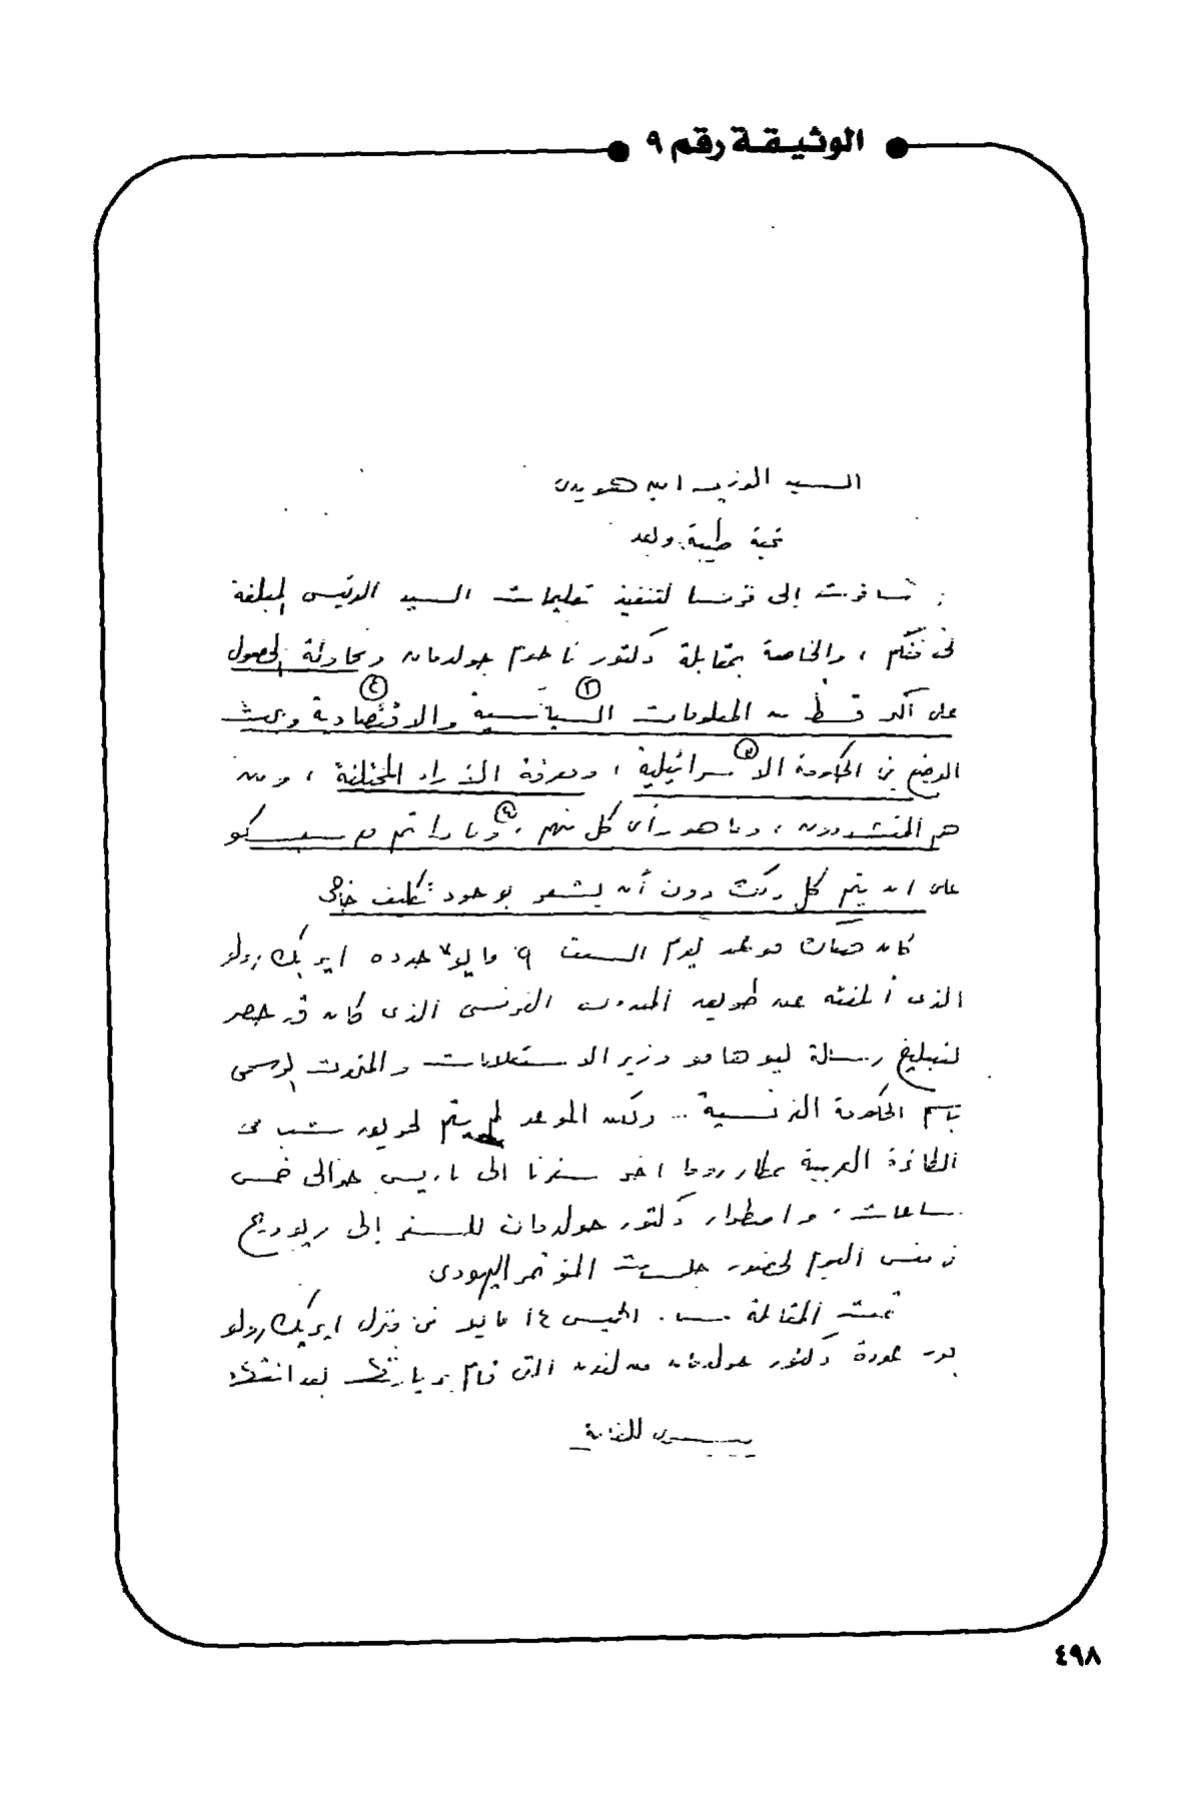 الوثيقة رقم ٩
السيد الوزير امين هويدى
تحية طيبة وبعد
سافرت إلى فرنسا لتنفيذ تعليمات السيد الرئيس المبلغة
لى منكم ، والخاصة بمقابلة دكتور ناحوم جولدمان ومحاولة الحصول
على أكبر قسط من المعلومات السياسية والاقتصادية وبحث
الوضع فى الحكومة الاسرائيلية ، ومعرفة الآراء المختلفة ، ومن
هم المتشددون ، وما هو رأى كل منهم ، وماذا تم مع سيسكو
على ان يتم كل ذلك دون أن يشعر بوجود تكليف خاص
كان هناك موعد يوم السبت ٩ مايو حدده ايريك رولو
الذى أبلغته عن طريق المندوب الفرنسى الذى كان فى مصر
لتبليغ رسالة ليو هامو وزير الاستعلامات والمتحدث الرسمى
باسم الحكومة الفرنسية .. ولكن الموعد لم يتم لحريق شب فى
الطائرة العربية بمطار روما اخر سفرنا الى باريس حوالى خمس
ساعات ، واضطرار دكتور جولدمان للسفر إلى
فى نفس اليوم لحضور جلسات المؤتمر اليهودى
تمت المقابلة مساء الخميس ١٤ مايو فى منزل ايريك رولو
بعد عودة دكتور جولدمان من لندن التى قام بزيارتها بعد
٤٩٨